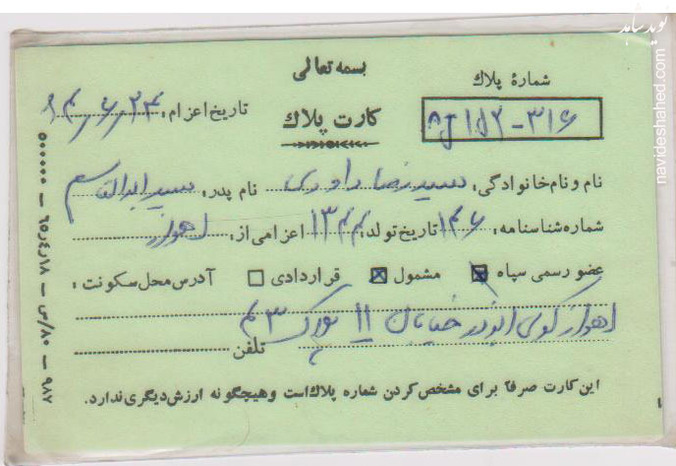 نوید شاهد
navideshahed.com
بسمه تعالی
شماره پلاك
تاریخ اعزام:
کارت پلاك
نام و نام خانوادگی: سیدرضا داوری نام پدر: سید ابوالقاسم
شماره شناسنامه: ۱۴۶ تاریخ تولد: ۱۳۴۴ اعزامی از: اهواز
عضو رسمی سپاه ☒ مشمول ☒ قراردادی ☐ آدرس محل سکونت:
اهواز کوی ابوذر خیابان ۱۱
تلفن
این کارت صرفا برای مشخص کردن شماره پلاك است وهیچگونه ارزش دیگری ندارد.